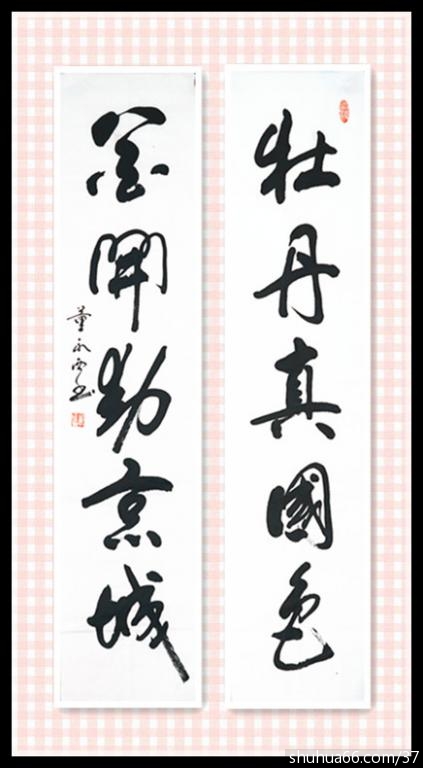 牡丹真國色
花開動京城
董永西书
shuhua66.com/37